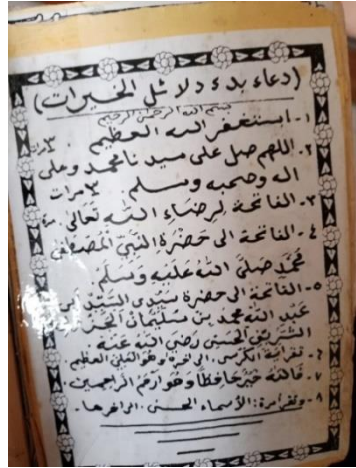 (دعاء بدء دلائل الخيرات)
بسم الله الرحمن الرحيم
١- استغفر الله العظيم ٣ مرات
٢. اللهم صل على سيدنا محمد وعلى
اله وصحبه وسلم ٣ مرات
٣- الفاتحة لرضاء الله تعالى
٤- الفاتحة الى حضرة النبي المصطفى
محمد صلى الله عليه وسلم
٥- الفاتحة الى حضرة سيدي السيد أبي
عبد الله محمد بن سليمان الجزولي
الشريف الحسني رضي الله عنه
٦- تقرأ آية الكرسي. الى آخره وهو العلي العظيم.
٧- فالله خير حافظا وهو أرحم الراحمين.
٨- وتقرأ الأسماء الحسنى. الى آخرها.